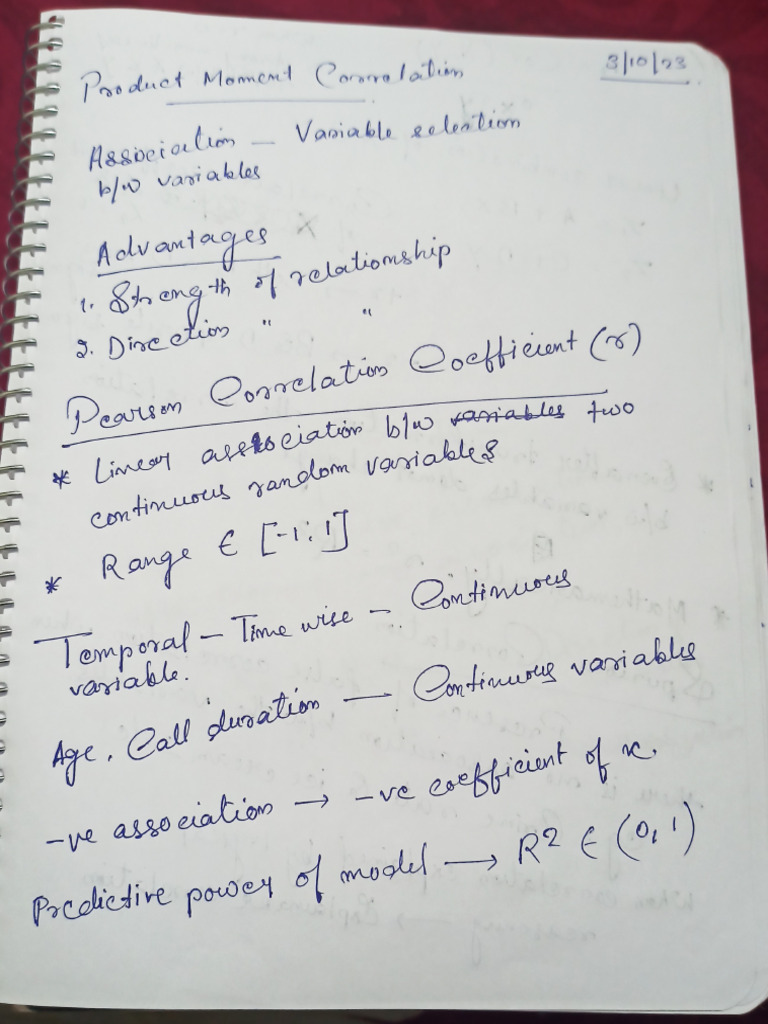 3/10/23
Product Moment Correlation
Association – Variable selection
b/w variables
Advantages
1. Strength of relationship
2. Direction " "
Pearson Correlation Coefficient (r)
* Linear association b/w variables two
continuous random variables
* Range ∈ [-1:1]
Temporal – Time wise – Continuous
variable.
Age, Call duration — Continuous variables
-ve association → -ve coefficient of x.
Predictive power of model → R2 ∈ (0,1)